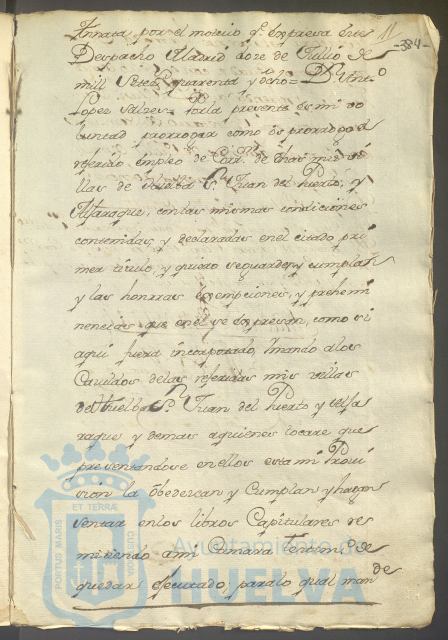 11
-384-
Annata por el motivo q.e se expresa en este
Despacho Madrid doze de Jullio de
mill Setez.s quarenta y ocho = D.n Ant.o
Lopez Salzes = Por la presente es mi vo
luntad prorrogar como os prorrogo el
referido empleo de Corr.or de dhas mis vi
llas de Huelba S.n Juan del Puerto, y
Aljaraque, con las mismas condiciones
contenidas y declaradas en el citado pri
mer titulo, y quiero se guarden y cumplan
y las honrras exempciones, y prehemi
nencias que en el se expresan, como si
aqui fuera incorporado, mando a los
Cavildos de las referidas mis villas
de Huelba S.n Juan del Puerto y Alja
raque y demas a quienes tocare que
presentandose en ellos esta mi Provi
sion la obedezcan y Cumplan y hagan
sentar en los libros Capitulares re
mitiendo a mi Camara testim.o de
quedar executado; para lo qual man
de
PORTUS MARIS
ET TERRÆ
CUSTODIA
Ayuntamiento de
HUELVA